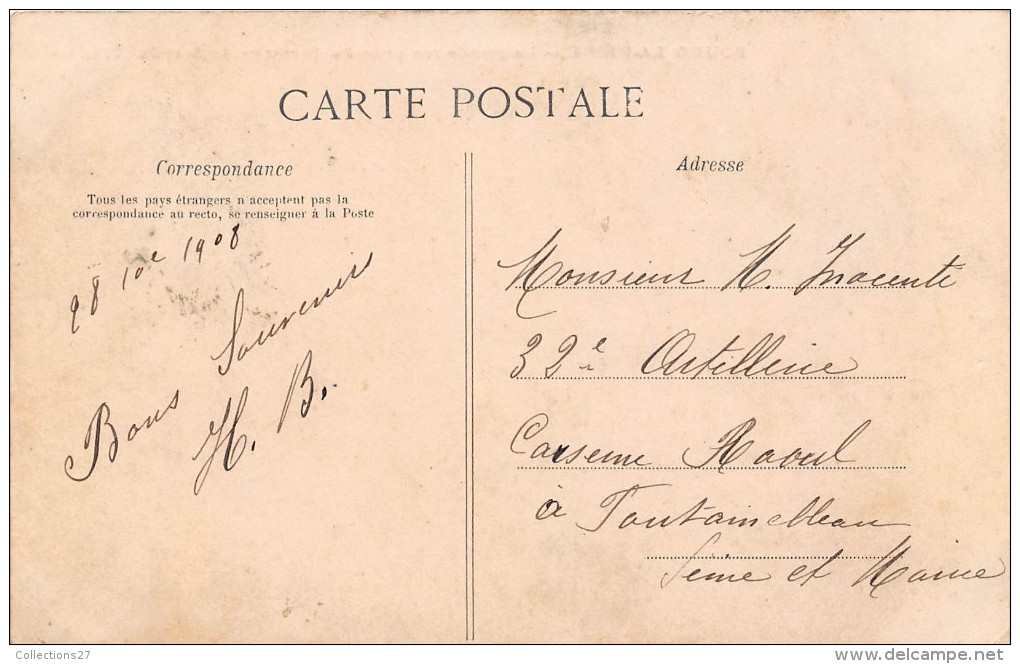 CARTE POSTALE
Correspondance
Tous les pays étrangers n acceptent pas la
correspondance au recto, se renseigner à la Poste
28 10e 1908
Bons Souvenirs
H. B.
Adresse
Monsieur H. Inocente
32è Artillerie
Caserne Raoul
à Fontainebleau
Seine et Marne
Collections27
www.delcampe.net